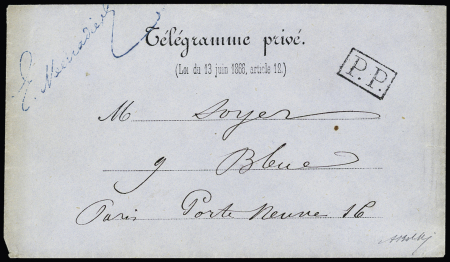 Télégramme privé.
(Loi du 13 juin 1866, article 12.)
P.P.
M Soyer
9 Bleue
Paris Porte Neuve 16